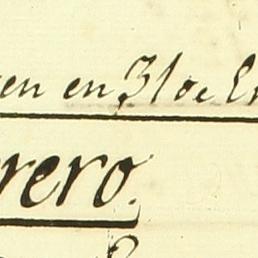 en en 31 de En
rero.